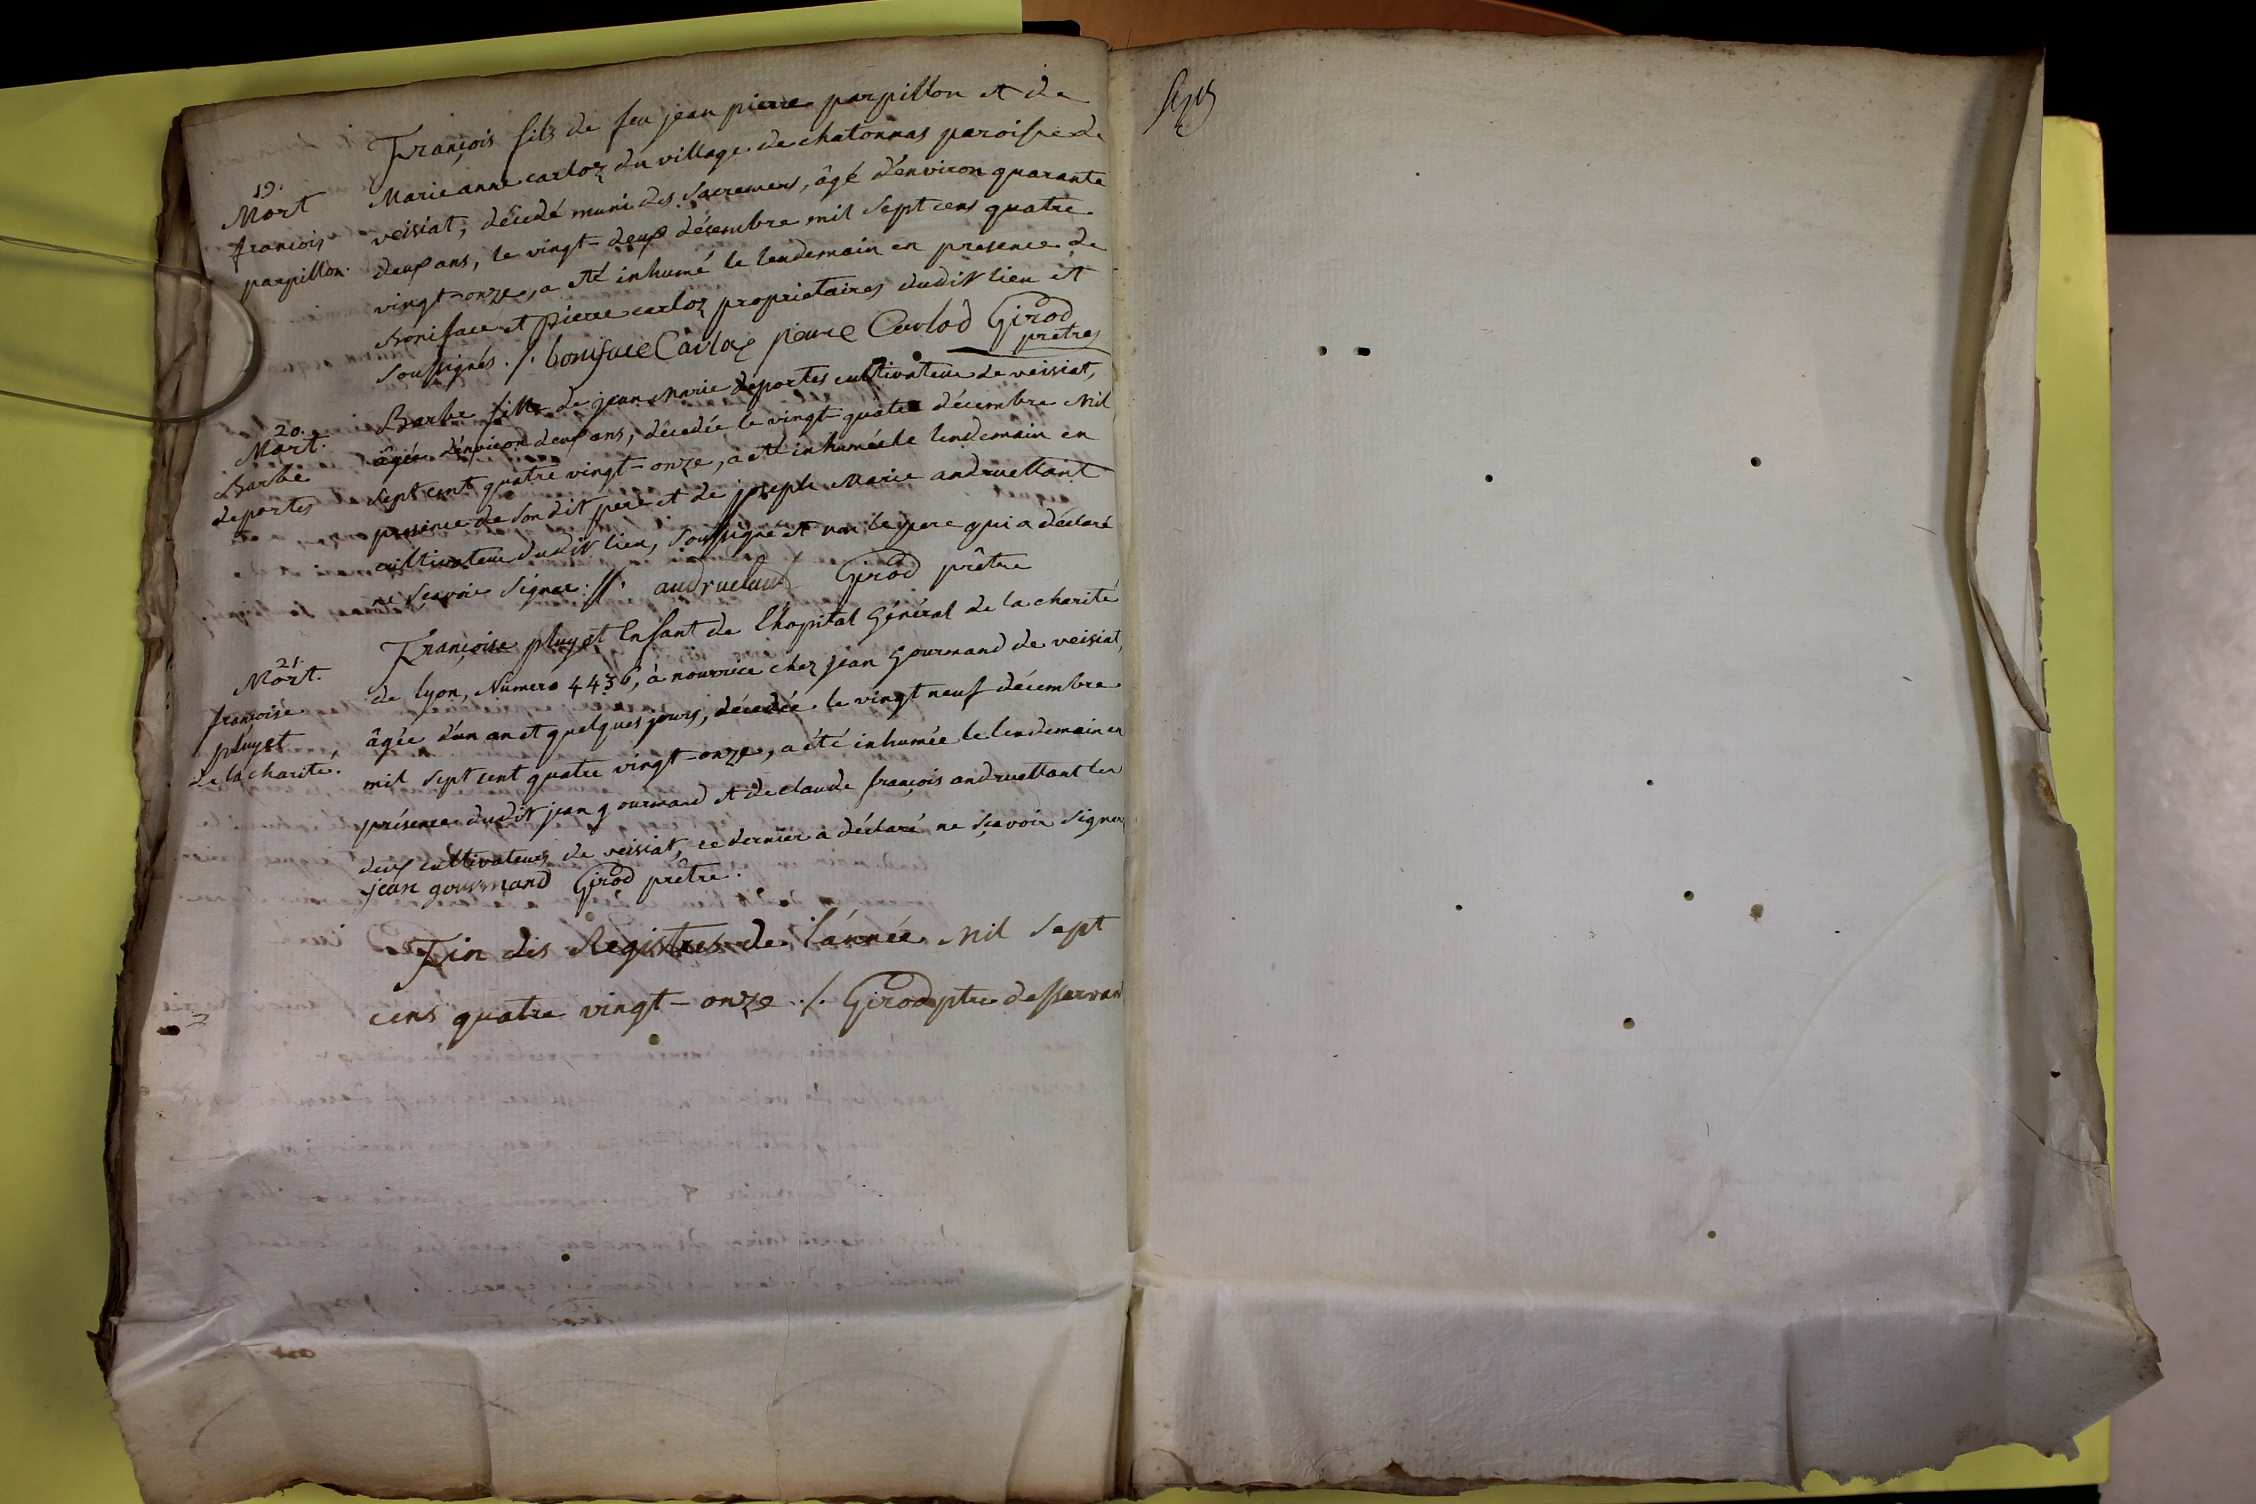 19.
Mort
françois
parpillon.
François fils de feu jean pierre parpillon et de
Marie anne carloz du village de chatonnas paroisse de
veisiat, décedé muni des Sacremens, âgé d'environ quarante
deux ans, le vingt-deux désembre mil sept cens quatre
vingt-onze, a été inhumé le lendemain en presence de
Boniface et pierre carloz propriétaires dudit lieu et
soussignés ./. boniface Carloz pierre Carlod Girod
prêtres
20.
Mort.
Barbe
deportes
Barbe fille de jean Marie déportes cultivateur de veisiat,
âgée d'environ deux ans, décedée le vingt-quatre décembre Mil
sept cent quatre vingt-onze, a été inhumée le lendemain en
presence de son dit pere et de joseph Marie andruettant
cultivateur dudit lieu, soussigné et non le pere qui a déclaré
ne sçavoir signer ://. andruetant Girod prêtre
21.
Mort.
françoise
pluyet
de la charité.
Françoise pluyet Enfant de l'hopital Général de la charité
de lyon, Numero 4436, à nourrice chez jean Gourmand de veisiat,
âgée d'un an et quelques jours, décedée le vingt neuf décembre
mil sept cent quatre vingt-onze, a été inhumée le lendemain en
présence dudit jean gourmand et de claude françois andruettant les
deux cultivateurs de veisiat, ce dernier a déclaré ne sçavoir signer
jean gourmand Girod prêtre.
Fin des Registres de l'année Mil sept
cens quatre vingt-onze ./. Girod ptre desservant